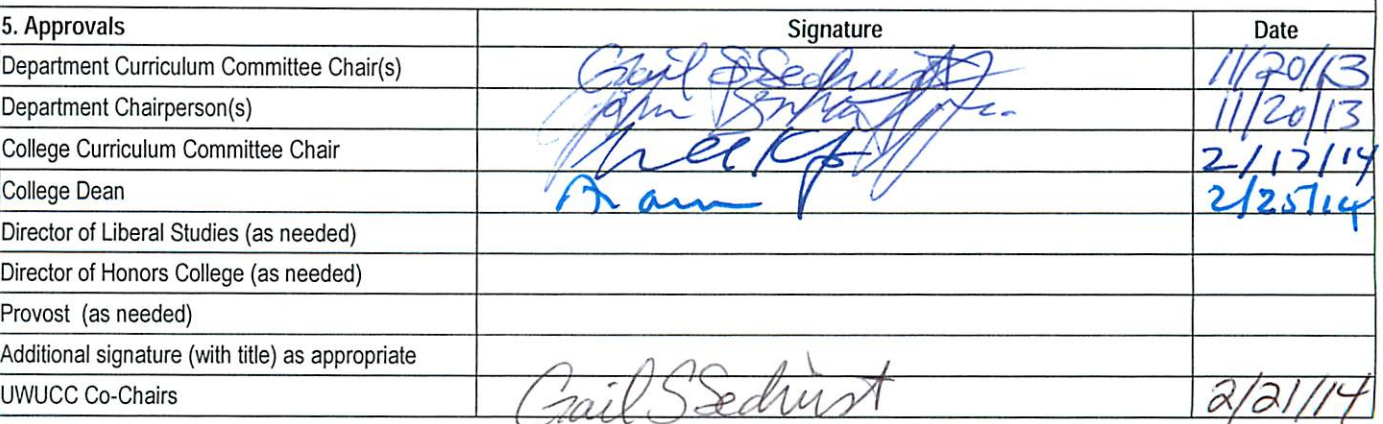 5. Approvals Signature Date
Department Curriculum Committee Chair(s) Gail S Sechrist 11/20/13
Department Chairperson(s) John 11/20/13
College Curriculum Committee Chair 2/17/14
College Dean 2/25/14
Director of Liberal Studies (as needed)
Director of Honors College (as needed)
Provost (as needed)
Additional signature (with title) as appropriate
UWUCC Co-Chairs Gail S Sechrist 2/21/14